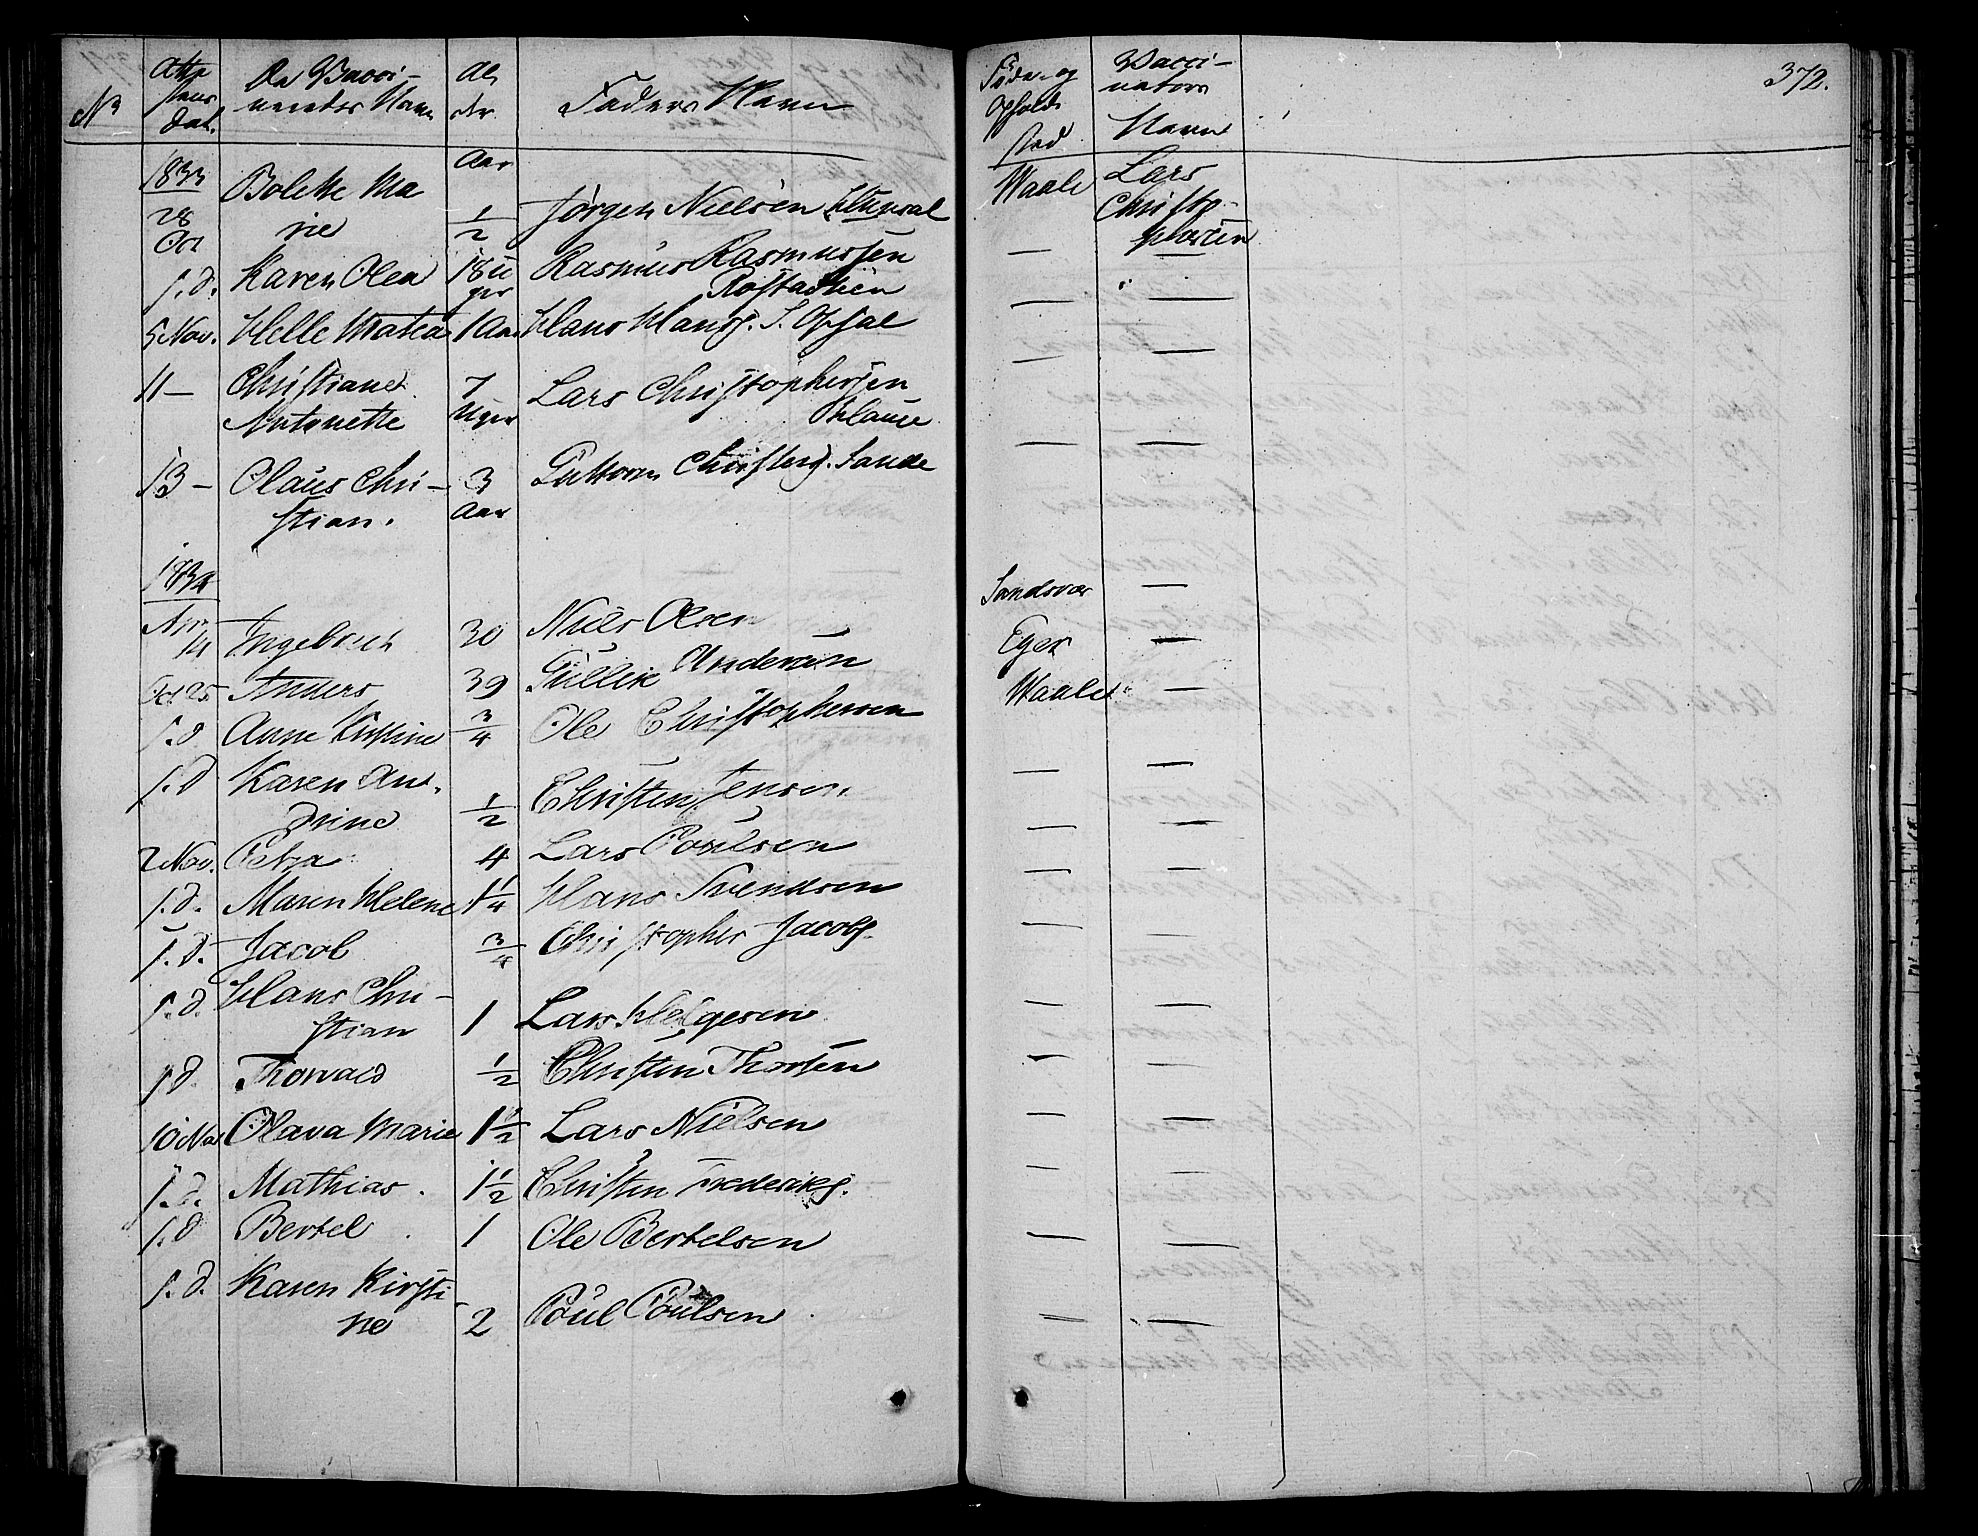 372.
No
Atte
stens
Dat.
De Vacci-
neredes Navn
Al
der
Faders Navn
Føde- og
Opholds
sted
Vacci-
nators
Navn
1833
Aar
28
Oct
Bolette Ma
rie
1/2
Jørgen Nielsen
Waale
Lars
Christo-
phersen
s.d.
Karen Olea
18 U
ger
Rasmus Rasmussen
— —
5 Nov.
Helle Matea
1 Aar
Hans Hans. S. Opsal
— —
11 —
Christiane
Antonette
7
Uger
Lars Christophersen
— —
13 —
Olaus Chri-
stian.
3
Aar
Guttorm Christens. Sande
— —
1834
Apr.
14
Ingeborg
30
Niels Olsen
Sandsvær —
Oct 25
Anders
39
Gullik Andersen
Eger —
s.d
Anne Kirstine
3/4
Ole Christophersen
Waale —
s.d
Karen An-
drine
1/2
Christen Jensen.
— —
2 Nov.
Petra
4
Lars Poulsen
— —
s.d.
Maren Helene
1 1/4
Hans Svendsen
— —
s.d.
Jacob
3/4
Christopher Jacobs.
— —
s.d.
Hans Chri-
stian
1
Lars Helgesen
— —
s.d.
Thorvald
1/2
Christen Thorsen
— —
10 Nov
Olava Marie
1 1/2
Lars Nielsen
— —
s.d.
Mathias.
1 1/2
Christen Frederiks.
— —
s.d
Bertel
1
Ole Bertelsen
— —
s.d.
Karen Kirsti-
ne
2
Poul Poulsen
— —